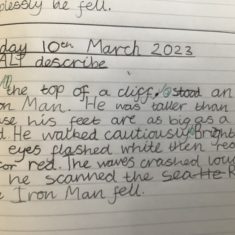 plessly be fell.
day 10th March 2023
ALT describe
the top of a cliff, stood an
on Man. He was taller than
use his feet are as big as a
d. He walked cautiously. Bright
eyes flashed white then red
for red. The waves crashed lou
he scanned the sea the
e Iron Man fell.